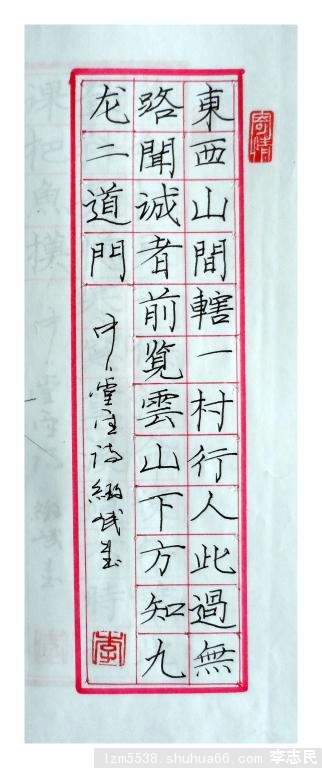 寄情
東西山間轄一村行人此過無
路聞诚者前览雲山下方知九
龙二道門
李
lzm5538.shuhua66.com 李志民